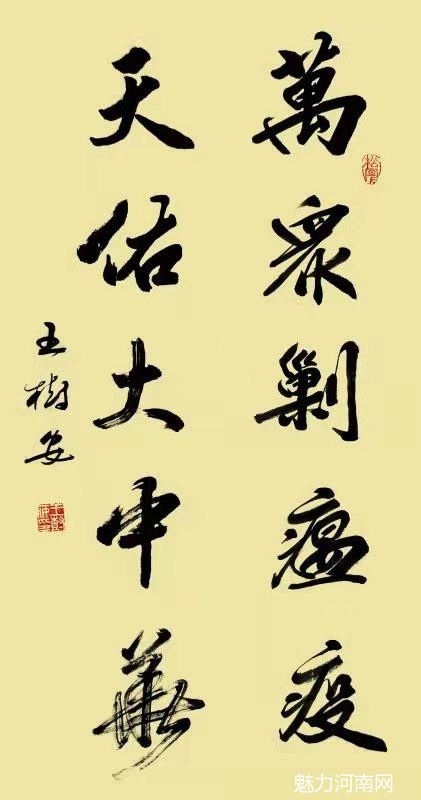 萬衆剿瘟疫
天佑大中華
王樹安
魅力河南网